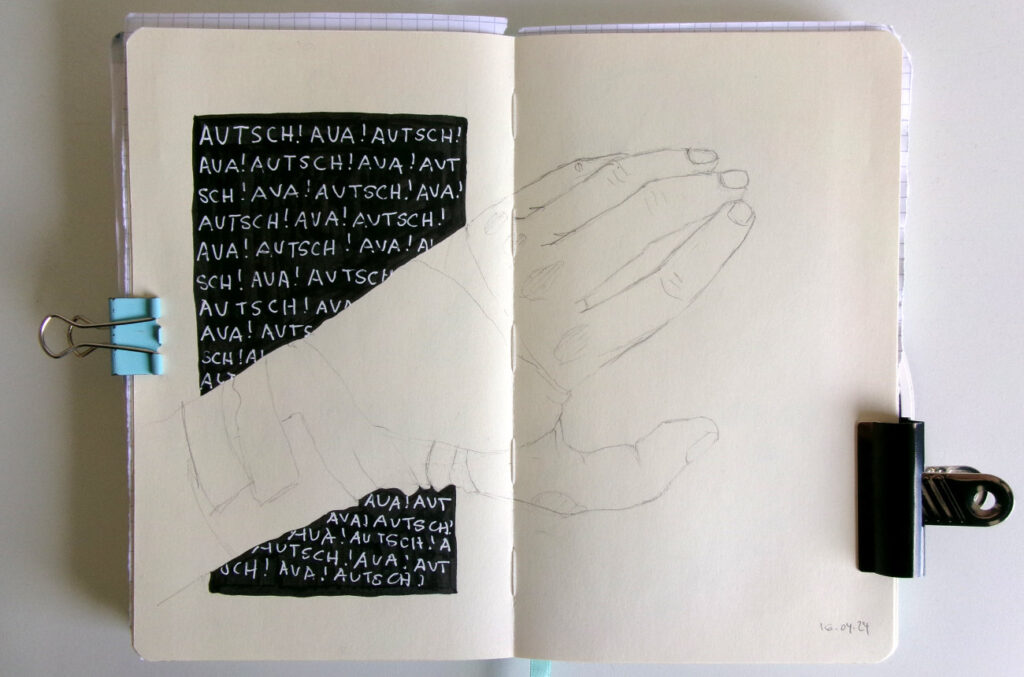 AUTSCH! AUA! AUTSCH!
AUA! AUTSCH! AUA! AUT
SCH! AUA! AUTSCH! AUA!
AUTSCH! AUA! AUTSCH!
AUA! AUTSCH! AUA! AU
SCH! AUA! AUTSCH
AUTSCH! AUA
AUA! AUTS
SCH! AU
AUT
AUA! AUT
AUA! AUTSCH!
AUA! AUTSCH! A
AUTSCH! AUA! AUT
SCH! AUA! AUTSCH!
16.04.24